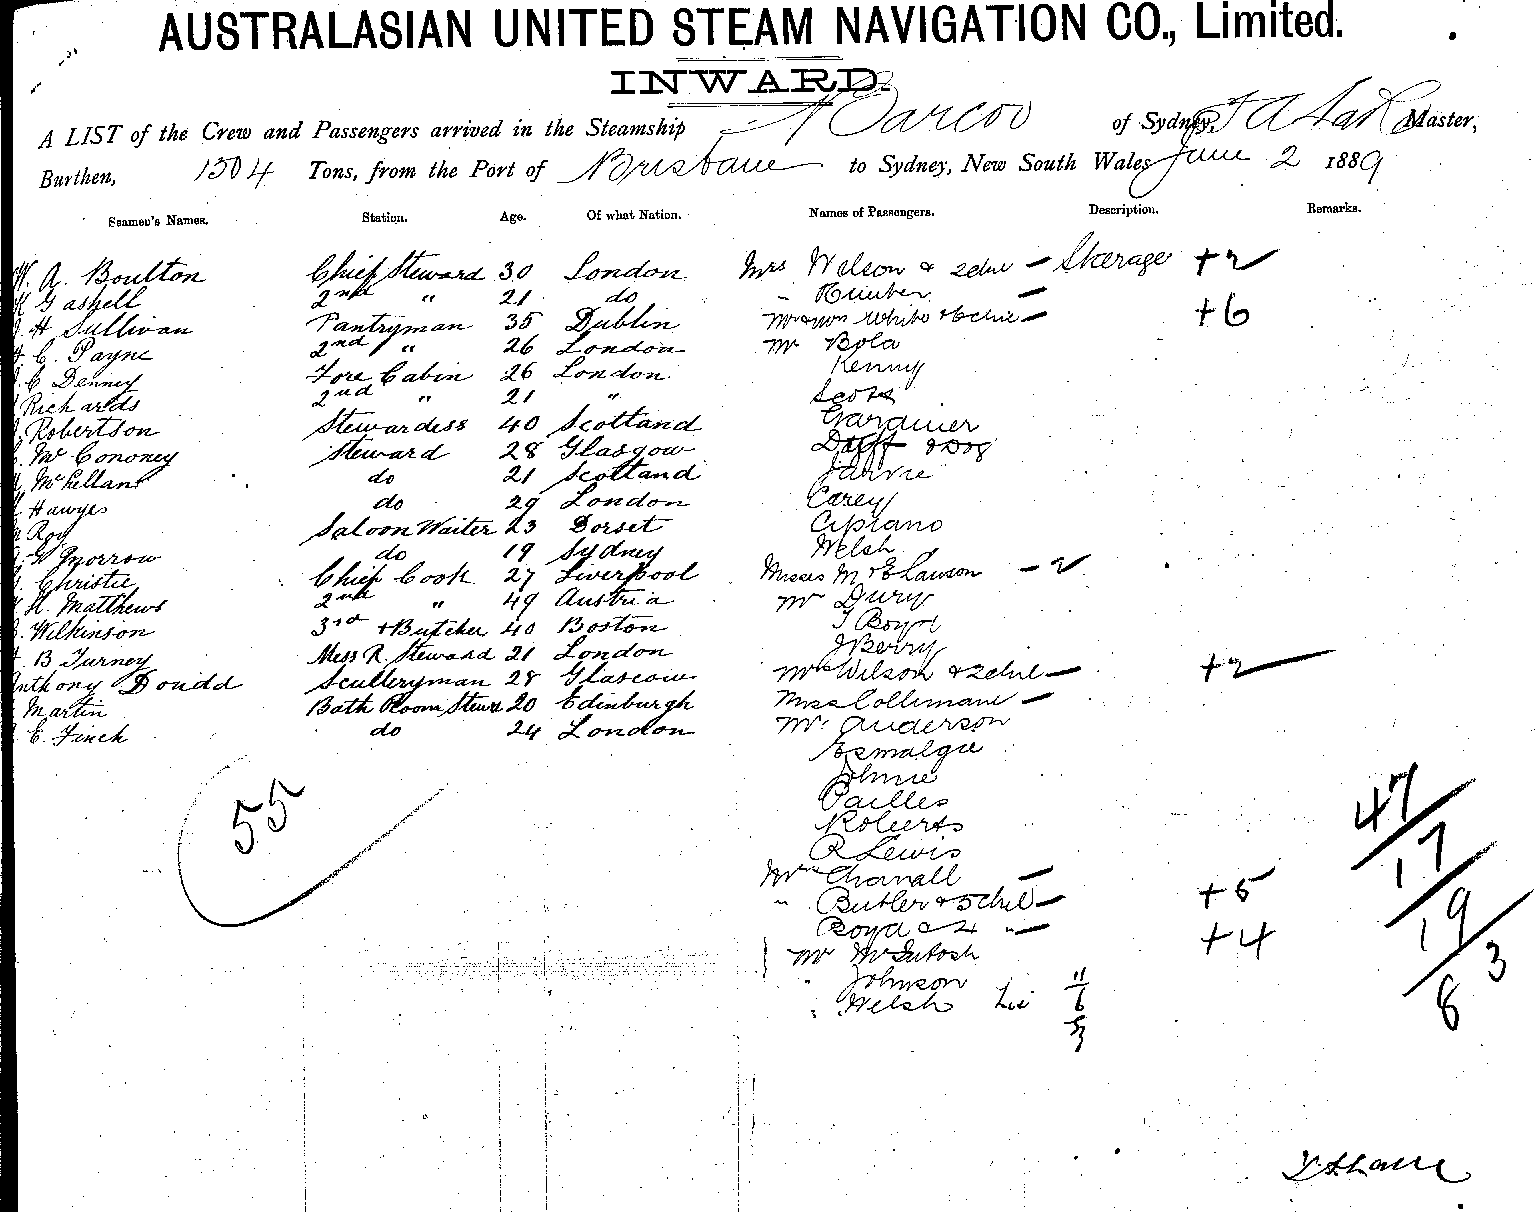 AUSTRALASIAN UNITED STEAM NAVIGATION CO., Limited.
INWARD.
A LIST of the Crew and Passengers arrived in the Steamship Barcoo of Sydney, Master,
Burthen, 1504 Tons, from the Port of Brisbane to Sydney, New South Wales June 2 1889
Seamen's Names. Station. Age. Of what Nation. Names of Passengers. Description. Remarks.
W. A. Boulton Chief Steward 30 London Mrs Wilson & 2 chil — Steerage +2
Gaskell 2nd " 21 do " —
H Sullivan Pantryman 35 Dublin Mr & Mrs White & 6 chil — +6
C. Payne 2nd " 26 London Mr Bola
C Denney Fore Cabin 26 London Kenny
Richards 2nd " 21 " Scott
Robertson Stewardess 40 Scotland Gardiner
Mc Cononey Steward 28 Glasgow & Dog
McLellan do 21 Scotland Jarvie
Hawyes do 29 London Carey
Roy Saloon Waiter 23 Dorset Cipriano
W Morrow do 19 Sydney Welsh
Christie Chief Cook 27 Liverpool Misses M & E Lawson — 2
H. Matthews 2nd " 49 Austria Mr Dury
Wilkinson 3rd + Butcher 40 Boston T Boyd
B Turney Mess R. Steward 21 London J Berry
Anthony Doudd Sculleryman 28 Glascow Mrs Wilson & 2 chil — +2
Martin Bath Room Stewd 20 Edinburgh Miss —
E. Finch do 24 London Mr Anderson
Pailles
Roberts
R Lewis
55
47
17
19
8 3
—
" Butler & 5 chil — +5
Boyd & 4 " — +4
Mr McIntosh
" Johnson
" Welsh
11
6